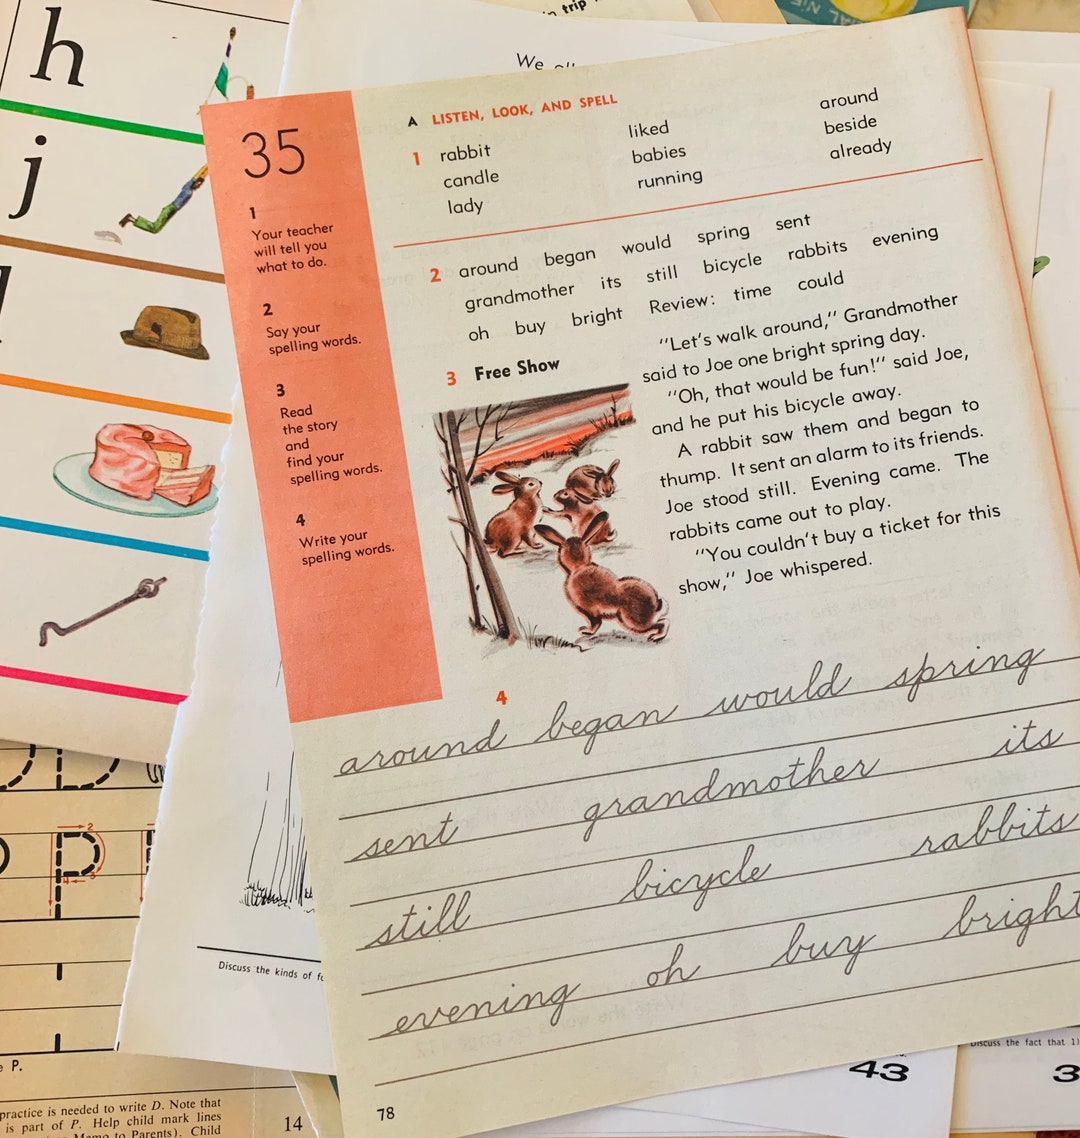 trip
We
h
j
35
1
Your teacher
will tell you
what to do.
2
Say your
spelling words.
3
Read
the story
and
find your
spelling words.
4
Write your
spelling words.
A LISTEN, LOOK, AND SPELL
1 rabbit liked around
candle babies beside
lady running already
2 around began would spring sent
grandmother its still bicycle rabbits evening
oh buy bright Review: time could
3 Free Show
"Let's walk around," Grandmother
said to Joe one bright spring day.
"Oh, that would be fun!" said Joe,
and he put his bicycle away.
A rabbit saw them and began to
thump. It sent an alarm to its friends.
Joe stood still. Evening came. The
rabbits came out to play.
"You couldn't buy a ticket for this
show," Joe whispered.
4
around began would spring
sent grandmother its
still bicycle rabbits
evening oh buy bright
78
P
2
3
4
1
Discuss the kinds of
P.
practice is needed to write D. Note that
is part of P. Help child mark lines
Memo to Parents). Child
14
Discuss the fact that 1)
43
3